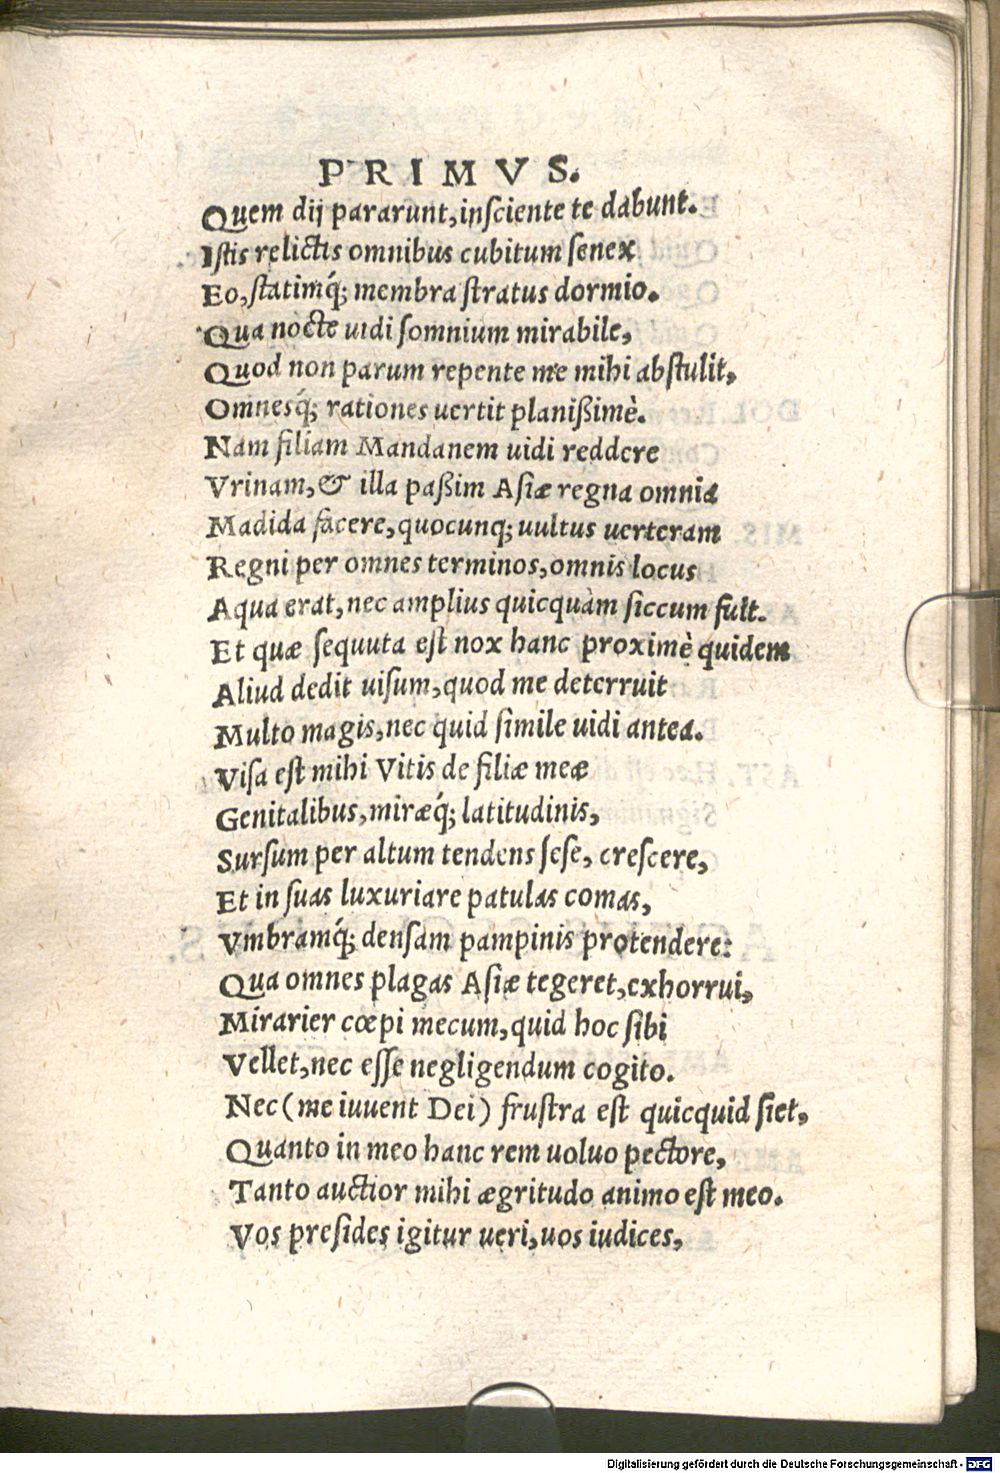 PRIMVS.
Quem dij pararunt, inſciente te dabunt.
Iſtis relictis omnibus cubitum ſenex
Eo, ſtatimq́; membra ſtratus dormio.
Qua nocte uidi ſomnium mirabile,
Quod non parum repente me mihi abſtulit,
Omnesq́; rationes uertit planißimè.
Nam filiam Mandanem uidi reddere
Vrinam, & illa paßim Aſiæ regna omnia
Madida facere, quocunq; uultus uerteram
Regni per omnes terminos, omnis locus
Aqua erat, nec amplius quicquàm ſiccum fuit.
Et quæ ſequuta eſt nox hanc proximè quidem
Aliud dedit uiſum, quod me deterruit
Multo magis, nec quid ſimile uidi antea.
Viſa eſt mihi Vitis de filiæ meæ
Genitalibus, miræq́; latitudinis,
Surſum per altum tendens ſeſe, creſcere,
Et in ſuas luxuriare patulas comas,
Vmbramq́; denſam pampinis protendere:
Qua omnes plagas Aſiæ tegeret, exhorrui,
Mirarier cœpi mecum, quid hoc ſibi
Vellet, nec eſſe negligendum cogito.
Nec (me iuuent Dei) fruſtra eſt quicquid ſiet,
Quanto in meo hanc rem uoluo pectore,
Tanto auctior mihi ægritudo animo eſt meo.
Vos preſides igitur ueri, uos iudices,
Digitalisierung gefördert durch die Deutsche Forschungsgemeinschaft - DFG